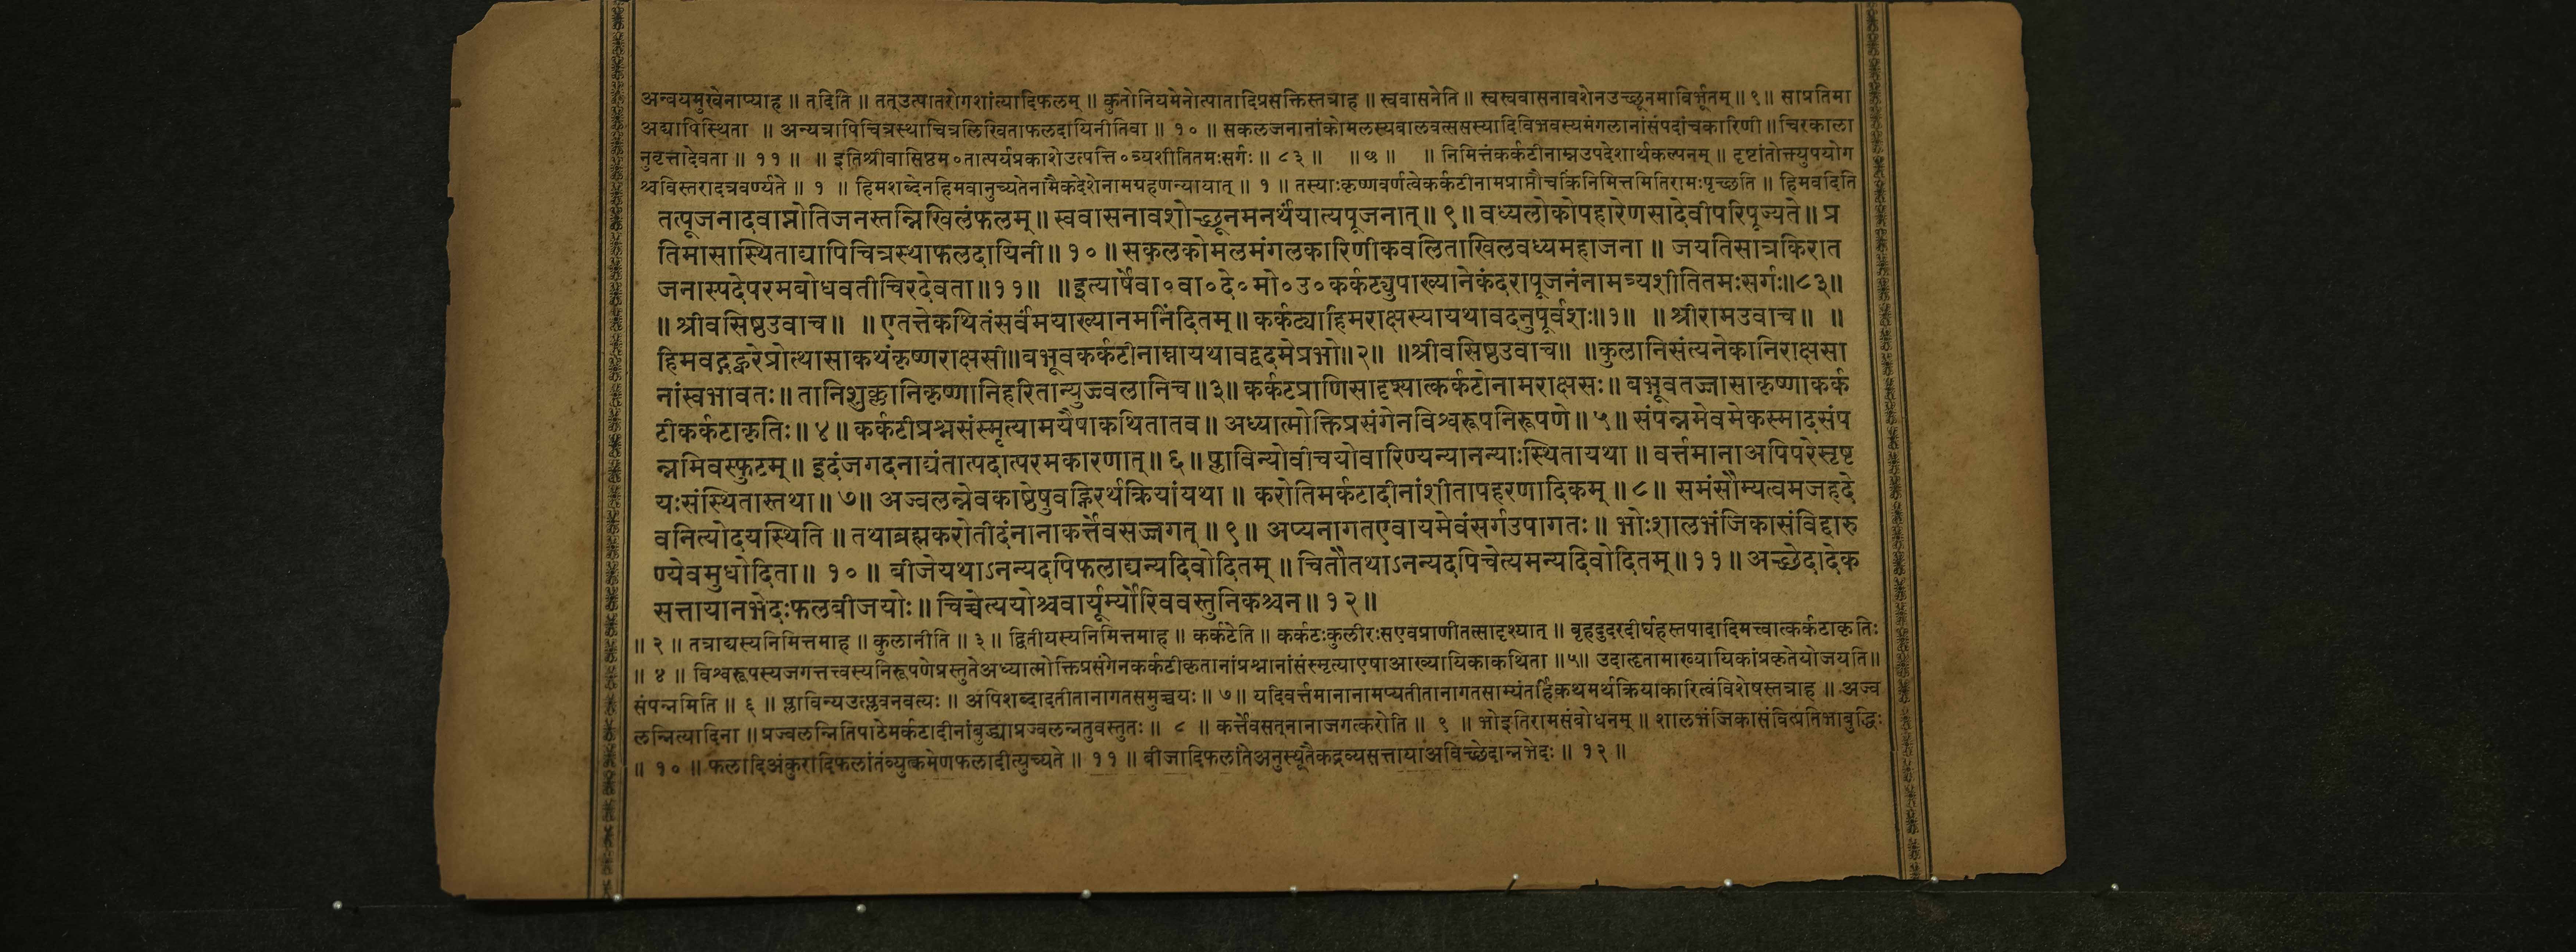 अन्वयमुखेनाप्याह ॥ तदिति ॥ तत्उत्पातरोगशांत्यादिफलम् ॥ कुतोनियमेनोत्पातादिप्रसक्तिस्तत्राह ॥ स्ववासनेति ॥ स्वस्ववासनावशेनउच्छूनमाविर्भूतम् ॥ ९ ॥ साप्रतिमा
अद्यापिस्थिता ॥ अन्यत्रापिचित्रस्थाचित्रलिखिताफलदायिनीतिवा ॥ १० ॥ सकलजनानांकोमलस्यबालवत्ससस्यादिविभवस्यमंगलानांसंपदांचकारिणी ॥ चिरकाला
नुवृत्तादेवता ॥ ११ ॥ ॥ इतिश्रीवासिष्ठम॰तात्पर्यप्रकाशेउत्पत्ति॰त्र्यशीतितमःसर्गः ॥ ८३ ॥ ॥ छ ॥ ॥ निमित्तंकर्कटीनाम्नउपदेशार्थकल्पनम् ॥ दृष्टांतोक्त्युपयोग
श्चविस्तरादत्रवर्ण्यते ॥ १ ॥ हिमशब्देनहिमवानुच्यतेनामैकदेशेनामग्रहणन्यायात् ॥ १ ॥ तस्याःकृष्णवर्णत्वेकर्कटीनामप्राप्तौचकिंनिमित्तमितिरामःपृच्छति ॥ हिमवदिति
तत्पूजनादवाप्नोतिजनस्तन्निखिलंफलम् ॥ स्ववासनावशोच्छूनमनर्थंयात्यपूजनात् ॥ ९ ॥ वध्यलोकोपहारेणसादेवीपरिपूज्यते ॥ प्र
तिमासास्थिताद्यापिचित्रस्थाफलदायिनी ॥ १० ॥ सकलकोमलमंगलकारिणीकवलिताखिलवध्यमहाजना ॥ जयतिसात्रकिरात
जनास्पदेपरमबोधवतीचिरदेवता ॥ ११ ॥ ॥ इत्यार्षेवा॰वा॰दे॰मो॰उ॰कर्कट्युपाख्यानेकंदरापूजनंनामत्र्यशीतितमःसर्गः ॥ ८३ ॥
॥ श्रीवसिष्ठउवाच ॥ ॥ एतत्तेकथितंसर्वंमयाख्यानमनिंदितम् ॥ कर्कट्याहिमराक्षस्यायथावदनुपूर्वशः ॥ १ ॥ ॥ श्रीरामउवाच ॥ ॥
हिमवद्गह्वरेप्रोत्थासाकथंकृष्णराक्षसी ॥ बभूवकर्कटीनाम्नायथावद्वदमेप्रभो ॥ २ ॥ ॥ श्रीवसिष्ठउवाच ॥ ॥ कुलानिसंत्यनेकानिराक्षसा
नांस्वभावतः ॥ तानिशुक्लानिकृष्णानिहरितान्युज्ज्वलानिच ॥ ३ ॥ कर्कटप्राणिसादृश्यात्कर्कटोनामराक्षसः ॥ बभूवतज्जासाकृष्णाकर्क
टीकर्कटाकृतिः ॥ ४ ॥ कर्कटीप्रश्नसंस्मृत्यामयैषाकथितातव ॥ अध्यात्मोक्तिप्रसंगेनविश्वरूपनिरूपणे ॥ ५ ॥ संपन्नमेवमेकस्मादसंप
न्नमिवस्फुटम् ॥ इदंजगदनाद्यंतात्पदात्परमकारणात् ॥ ६ ॥ प्लाविन्योवीचयोवारिण्यन्यानन्याःस्थितायथा ॥ वर्त्तमानाअपिपरेसृष्ट
यःसंस्थितास्तथा ॥ ७ ॥ अज्वलन्नेवकाष्ठेषुवह्निरर्थक्रियांयथा ॥ करोतिमर्कटादीनांशीतापहरणादिकम् ॥ ८ ॥ समंसौम्यत्वमजहदे
वनित्योदयस्थिति ॥ तथाब्रह्मकरोतीदंनानाकर्त्तेवसज्जगत् ॥ ९ ॥ अप्यनागतएवायमेवंसर्गउपागतः ॥ भोःशालभंजिकासंविद्दारु
ण्येवमुधोदिता ॥ १० ॥ बीजेयथाऽनन्यदपिफलाद्यन्यदिवोदितम् ॥ चितौतथाऽनन्यदपिचेत्यमन्यदिवोदितम् ॥ ११ ॥ अच्छेदादेक
सत्तायानभेदःफलबीजयोः ॥ चिच्चेत्ययोश्चवार्यूर्म्योरिववस्तुनिकश्चन ॥ १२ ॥
॥ २ ॥ तत्राद्यस्यनिमित्तमाह ॥ कुलानीति ॥ ३ ॥ द्वितीयस्यनिमित्तमाह ॥ कर्कटेति ॥ कर्कटःकुलीरःसएवप्राणीतत्सादृश्यात् ॥ बृहदुदरदीर्घहस्तपादादिमत्त्वात्कर्कटाकृतिः
॥ ४ ॥ विश्वरूपस्यजगत्तत्त्वस्यनिरूपणेप्रस्तुतेअध्यात्मोक्तिप्रसंगेनकर्कटीकृतानांप्रश्नानांसंस्मृत्याएषाआख्यायिकाकथिता ॥ ५ ॥ उदाहृतामाख्यायिकांप्रकृतेयोजयति ॥
संपन्नमिति ॥ ६ ॥ प्लाविन्यउत्प्लवनवत्यः ॥ अपिशब्दादतीतानागतसमुच्चयः ॥ ७ ॥ यदिवर्त्तमानानामप्यतीतानागतसाम्यंतर्हिकथमर्थक्रियाकारित्वंविशेषस्तत्राह ॥ अज्व
लन्नित्यादिना ॥ प्रज्वलन्नितिपाठेमर्कटादीनांबुद्ध्याप्रज्वलन्नतुवस्तुतः ॥ ८ ॥ कर्त्तेवसत्नानाजगत्करोति ॥ ९ ॥ भोइतिरामसंबोधनम् ॥ शालभंजिकासंवित्प्रतिभाबुद्धिः
॥ १० ॥ फलादिअंकुरादिफलांतंव्युत्क्रमेणफलादीत्युच्यते ॥ ११ ॥ बीजादिफलांतेअनुस्यूतैकद्रव्यसत्तायाअविच्छेदान्नभेदः ॥ १२ ॥